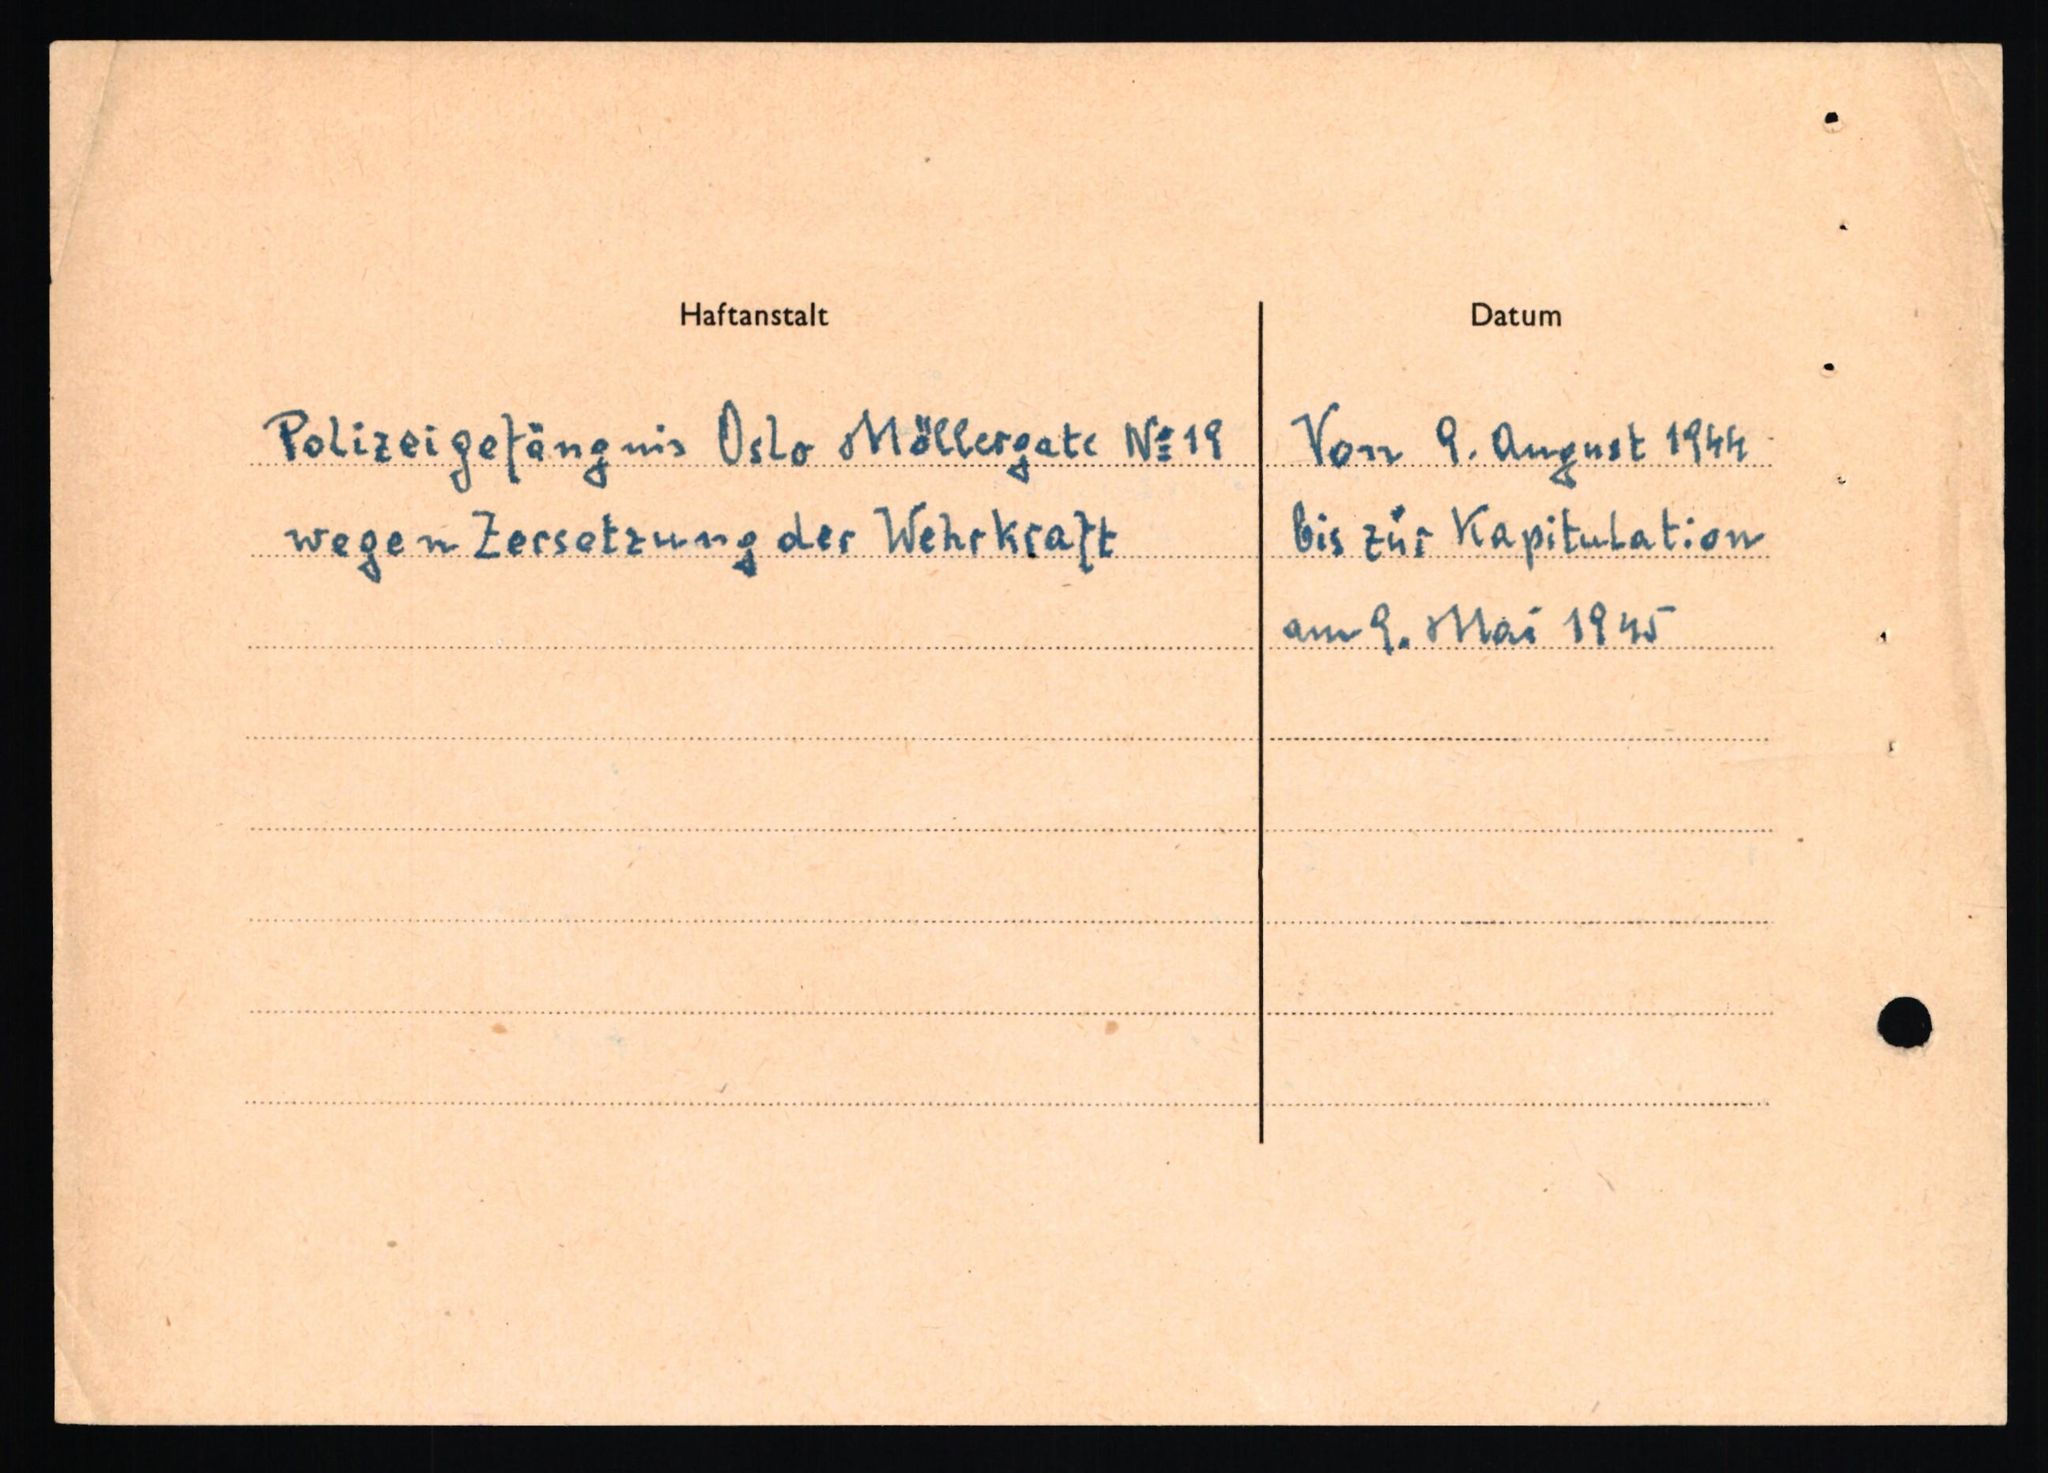 Haftanstalt Datum
Polizeigefängnis Oslo Möllergate № 19 Von 9. August 1944
wegen Zersetzung der Wehrkraft bis zur Kapitulation
am 9. Mai 1945